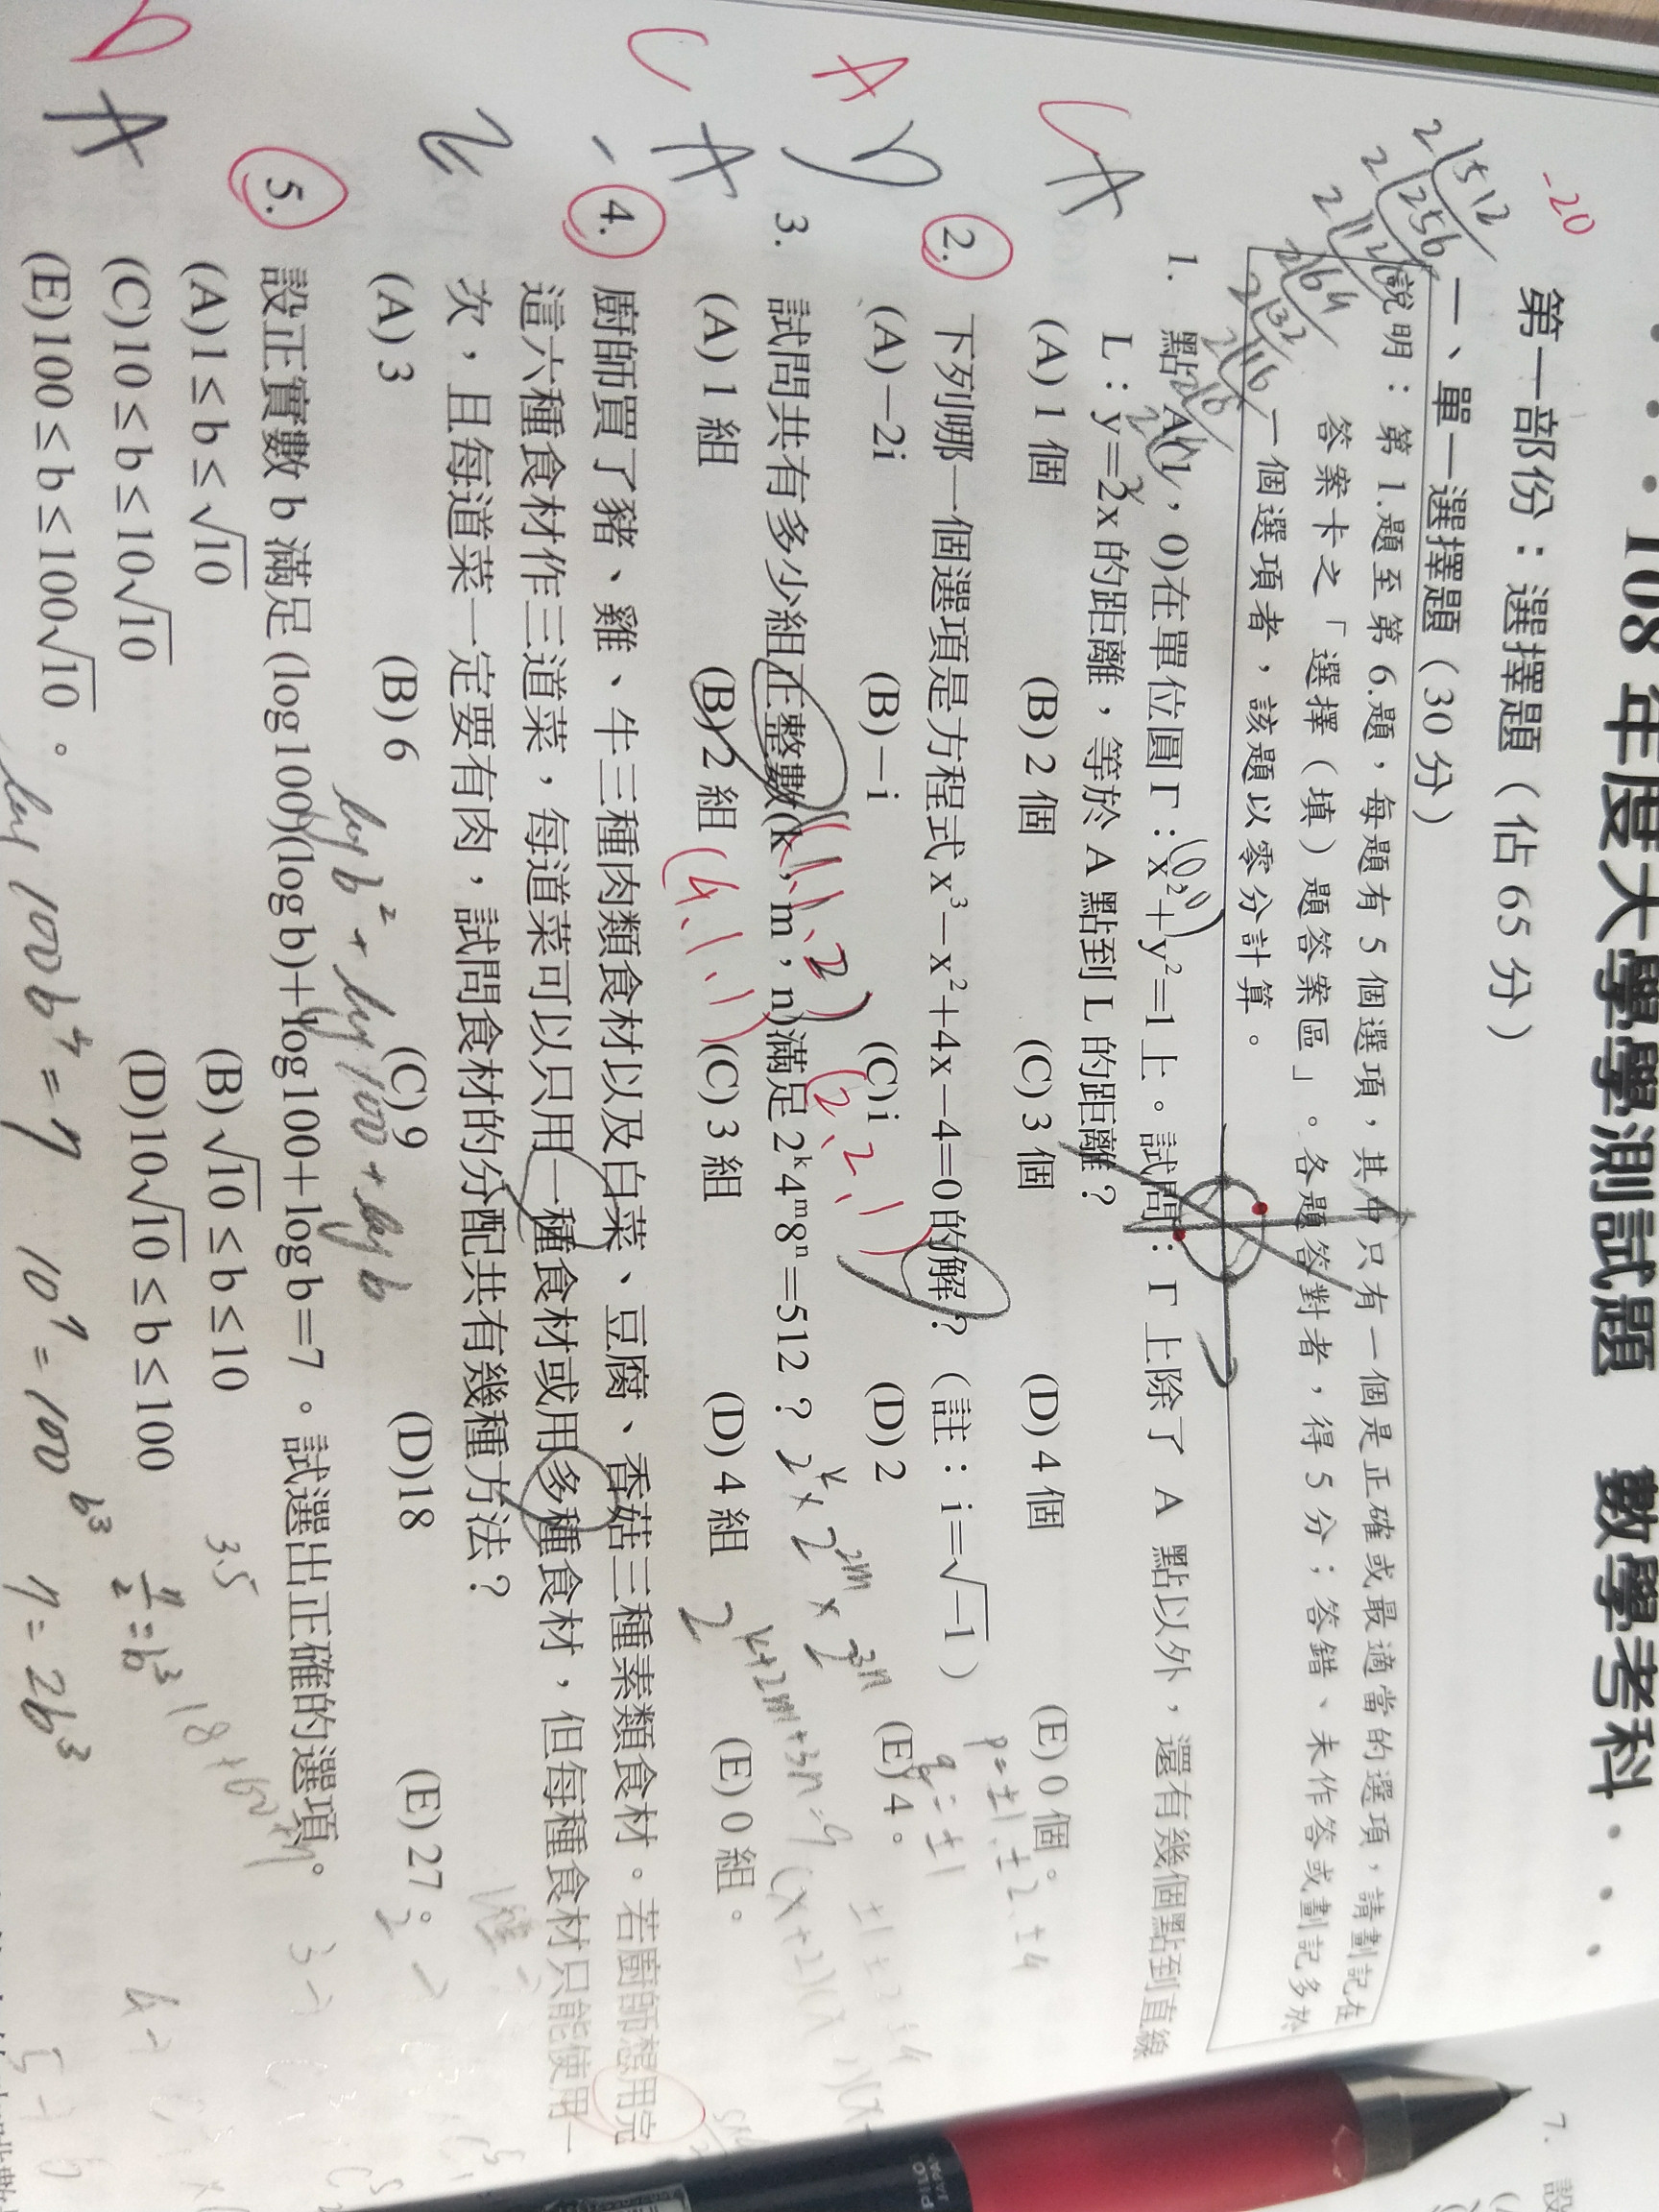 108 年度大學學測試題 數學考科
第一部份：選擇題（佔 65 分）
一、單一選擇題（30 分）
說明：第 1.題至第 6.題，每題有 5 個選項，其中只有一個是正確或最適當的選項，請劃記在
答案卡之「選擇（填）題答案區」。各題答對者，得 5 分；答錯、未作答或劃記多於
一個選項者，該題以零分計算。
1. 點 A(1，0)在單位圓 Γ：x²+y²=1 上。試問：Γ 上除了 A 點以外，還有幾個點到直線
L：y=2x 的距離，等於 A 點到 L 的距離？
(A) 1 個 (B) 2 個 (C) 3 個 (D) 4 個 (E) 0 個。
2. 下列哪一個選項是方程式 x³－x²+4x－4=0 的解？（註：i=√−1）
(A)－2i (B)－i (C) i (D) 2 (E) 4。
3. 試問共有多少組正整數(k，m，n)滿足 2ᵏ4ᵐ8ⁿ=512？
(A) 1 組 (B) 2 組 (C) 3 組 (D) 4 組 (E) 0 組。
4. 廚師買了豬、雞、牛三種肉類食材以及白菜、豆腐、香菇三種素類食材。若廚師想用完
這六種食材作三道菜，每道菜可以只用一種食材或用多種食材，但每種食材只能使用一
次，且每道菜一定要有肉，試問食材的分配共有幾種方法？
(A) 3 (B) 6 (C) 9 (D)18 (E) 27。
5. 設正實數 b 滿足 (log100)(log b)+log100+log b=7。試選出正確的選項。
(A)1 ≤ b ≤ √10 (B) √10 ≤ b ≤ 10
(C)10 ≤ b ≤ 10√10 (D)10√10 ≤ b ≤ 100
(E)100 ≤ b ≤ 100√10。
-20
2|512
2|256
2|64
2|32
2|16
(0,0)
(1、1、2)
(2、2、1)
(4、1、1)
2ᵏ × 2²ᵐ × 2³ⁿ
2ᵏ⁺²ᵐ⁺³ⁿ=9
p=±1,±2,±4
q=±1
log b² + log 100 + log b
log 100b⁴ = 7
10⁷ = 100b³
7 = 2b³
3.5
7/2 = b³
C
A
A
D
C
A
A
7.
PILOT
JAPAN